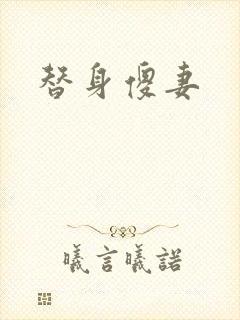 替身傻妻
曦言曦諾